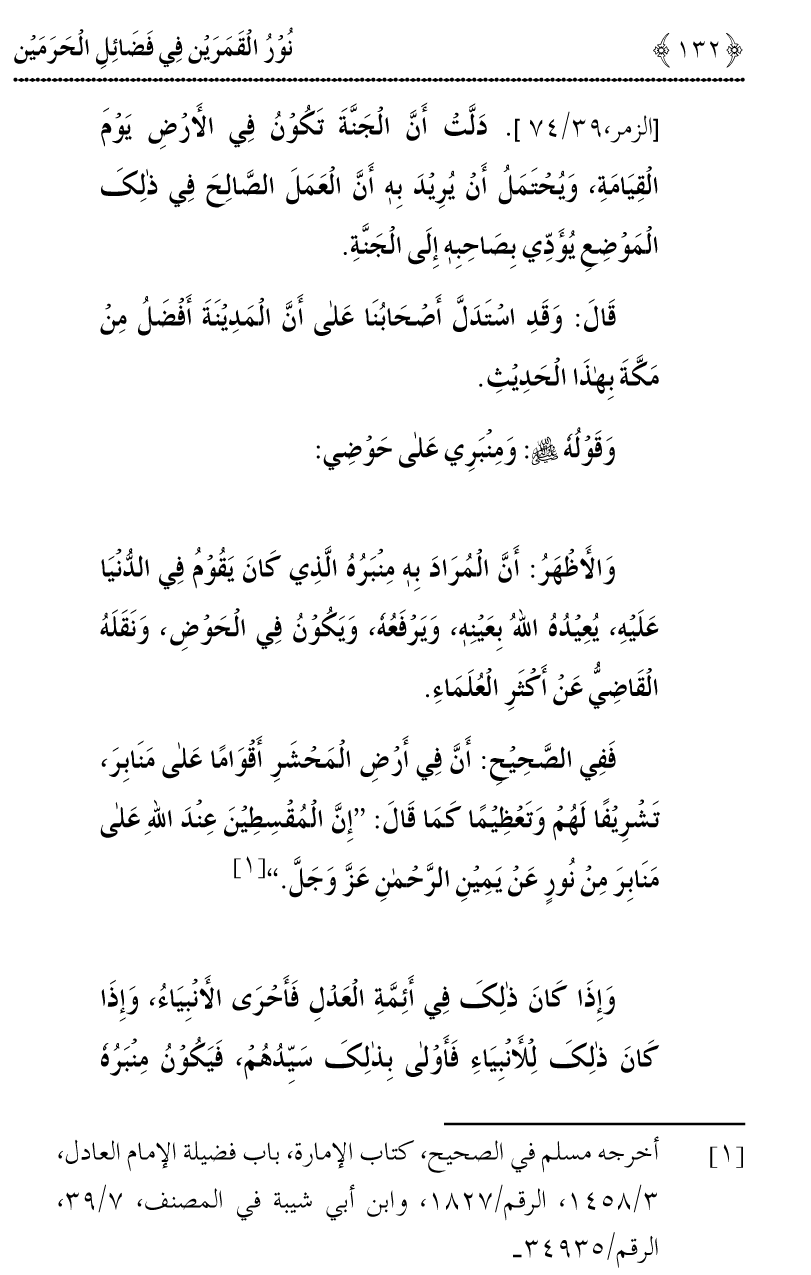 ﴿١٣٢﴾ نُوْرُ الْقَمَرَيْن فِي فَضَائِلِ الْحَرَمَيْن
[الزمر،٧٤/٣٩]. دَلَّتْ أَنَّ الْجَنَّةَ تَكُوْنُ فِي الْأَرْضِ يَوْمَ
الْقِيَامَةِ، وَيُحْتَمَلُ أَنْ يُرِيْدَ بِهٖ أَنَّ الْعَمَلَ الصَّالِحَ فِي ذٰلِکَ
الْمَوْضِعِ يُؤَدِّي بِصَاحِبِهٖ إِلَی الْجَنَّةِ.
قَالَ: وَقَدِ اسْتَدَلَّ أَصْحَابُنَا عَلٰی أَنَّ الْمَدِيْنَةَ أَفْضَلُ مِنْ
مَکَّةَ بِهٰذَا الْحَدِيْثِ.
وَقَوْلُهٗ ﷺ: وَمِنْبَرِي عَلٰی حَوْضِي:
وَالْأَظْهَرُ: أَنَّ الْمُرَادَ بِهٖ مِنْبَرُهُ الَّذِي کَانَ يَقُوْمُ فِي الدُّنْيَا
عَلَيْهِ، يُعِيْدُهُ اللهُ بِعَيْنِهٖ، وَيَرْفَعُهٗ، وَيَکُوْنُ فِي الْحَوْضِ، وَنَقَلَهُ
الْقَاضِيُّ عَنْ أَکْثَرِ الْعُلَمَاءِ.
فَفِي الصَّحِيْحِ: أَنَّ فِي أَرْضِ الْمَحْشَرِ أَقْوَامًا عَلٰی مَنَابِرَ،
تَشْرِيْفًا لَهُمْ وَتَعْظِيْمًا کَمَا قَالَ: ”إِنَّ الْمُقْسِطِيْنَ عِنْدَ اللهِ عَلٰی
مَنَابِرَ مِنْ نُورٍ عَنْ يَمِيْنِ الرَّحْمٰنِ عَزَّ وَجَلَّ.“[١]
وَإِذَا کَانَ ذٰلِکَ فِي أَئِمَّةِ الْعَدْلِ فَأَحْرَی الْأَنْبِيَاءُ، وَإِذَا
کَانَ ذٰلِکَ لِلْأَنْبِيَاءِ فَأَوْلٰی بِذٰلِکَ سَيِّدُهُمْ، فَيَکُوْنُ مِنْبَرُهٗ
[١] أخرجه مسلم في الصحيح، كتاب الإمارة، باب فضيلة الإمام العادل،
١٤٥٨/٣، الرقم/١٨٢٧، وابن أبي شيبة في المصنف، ٣٩/٧،
الرقم/٣٤٩٣٥ـ